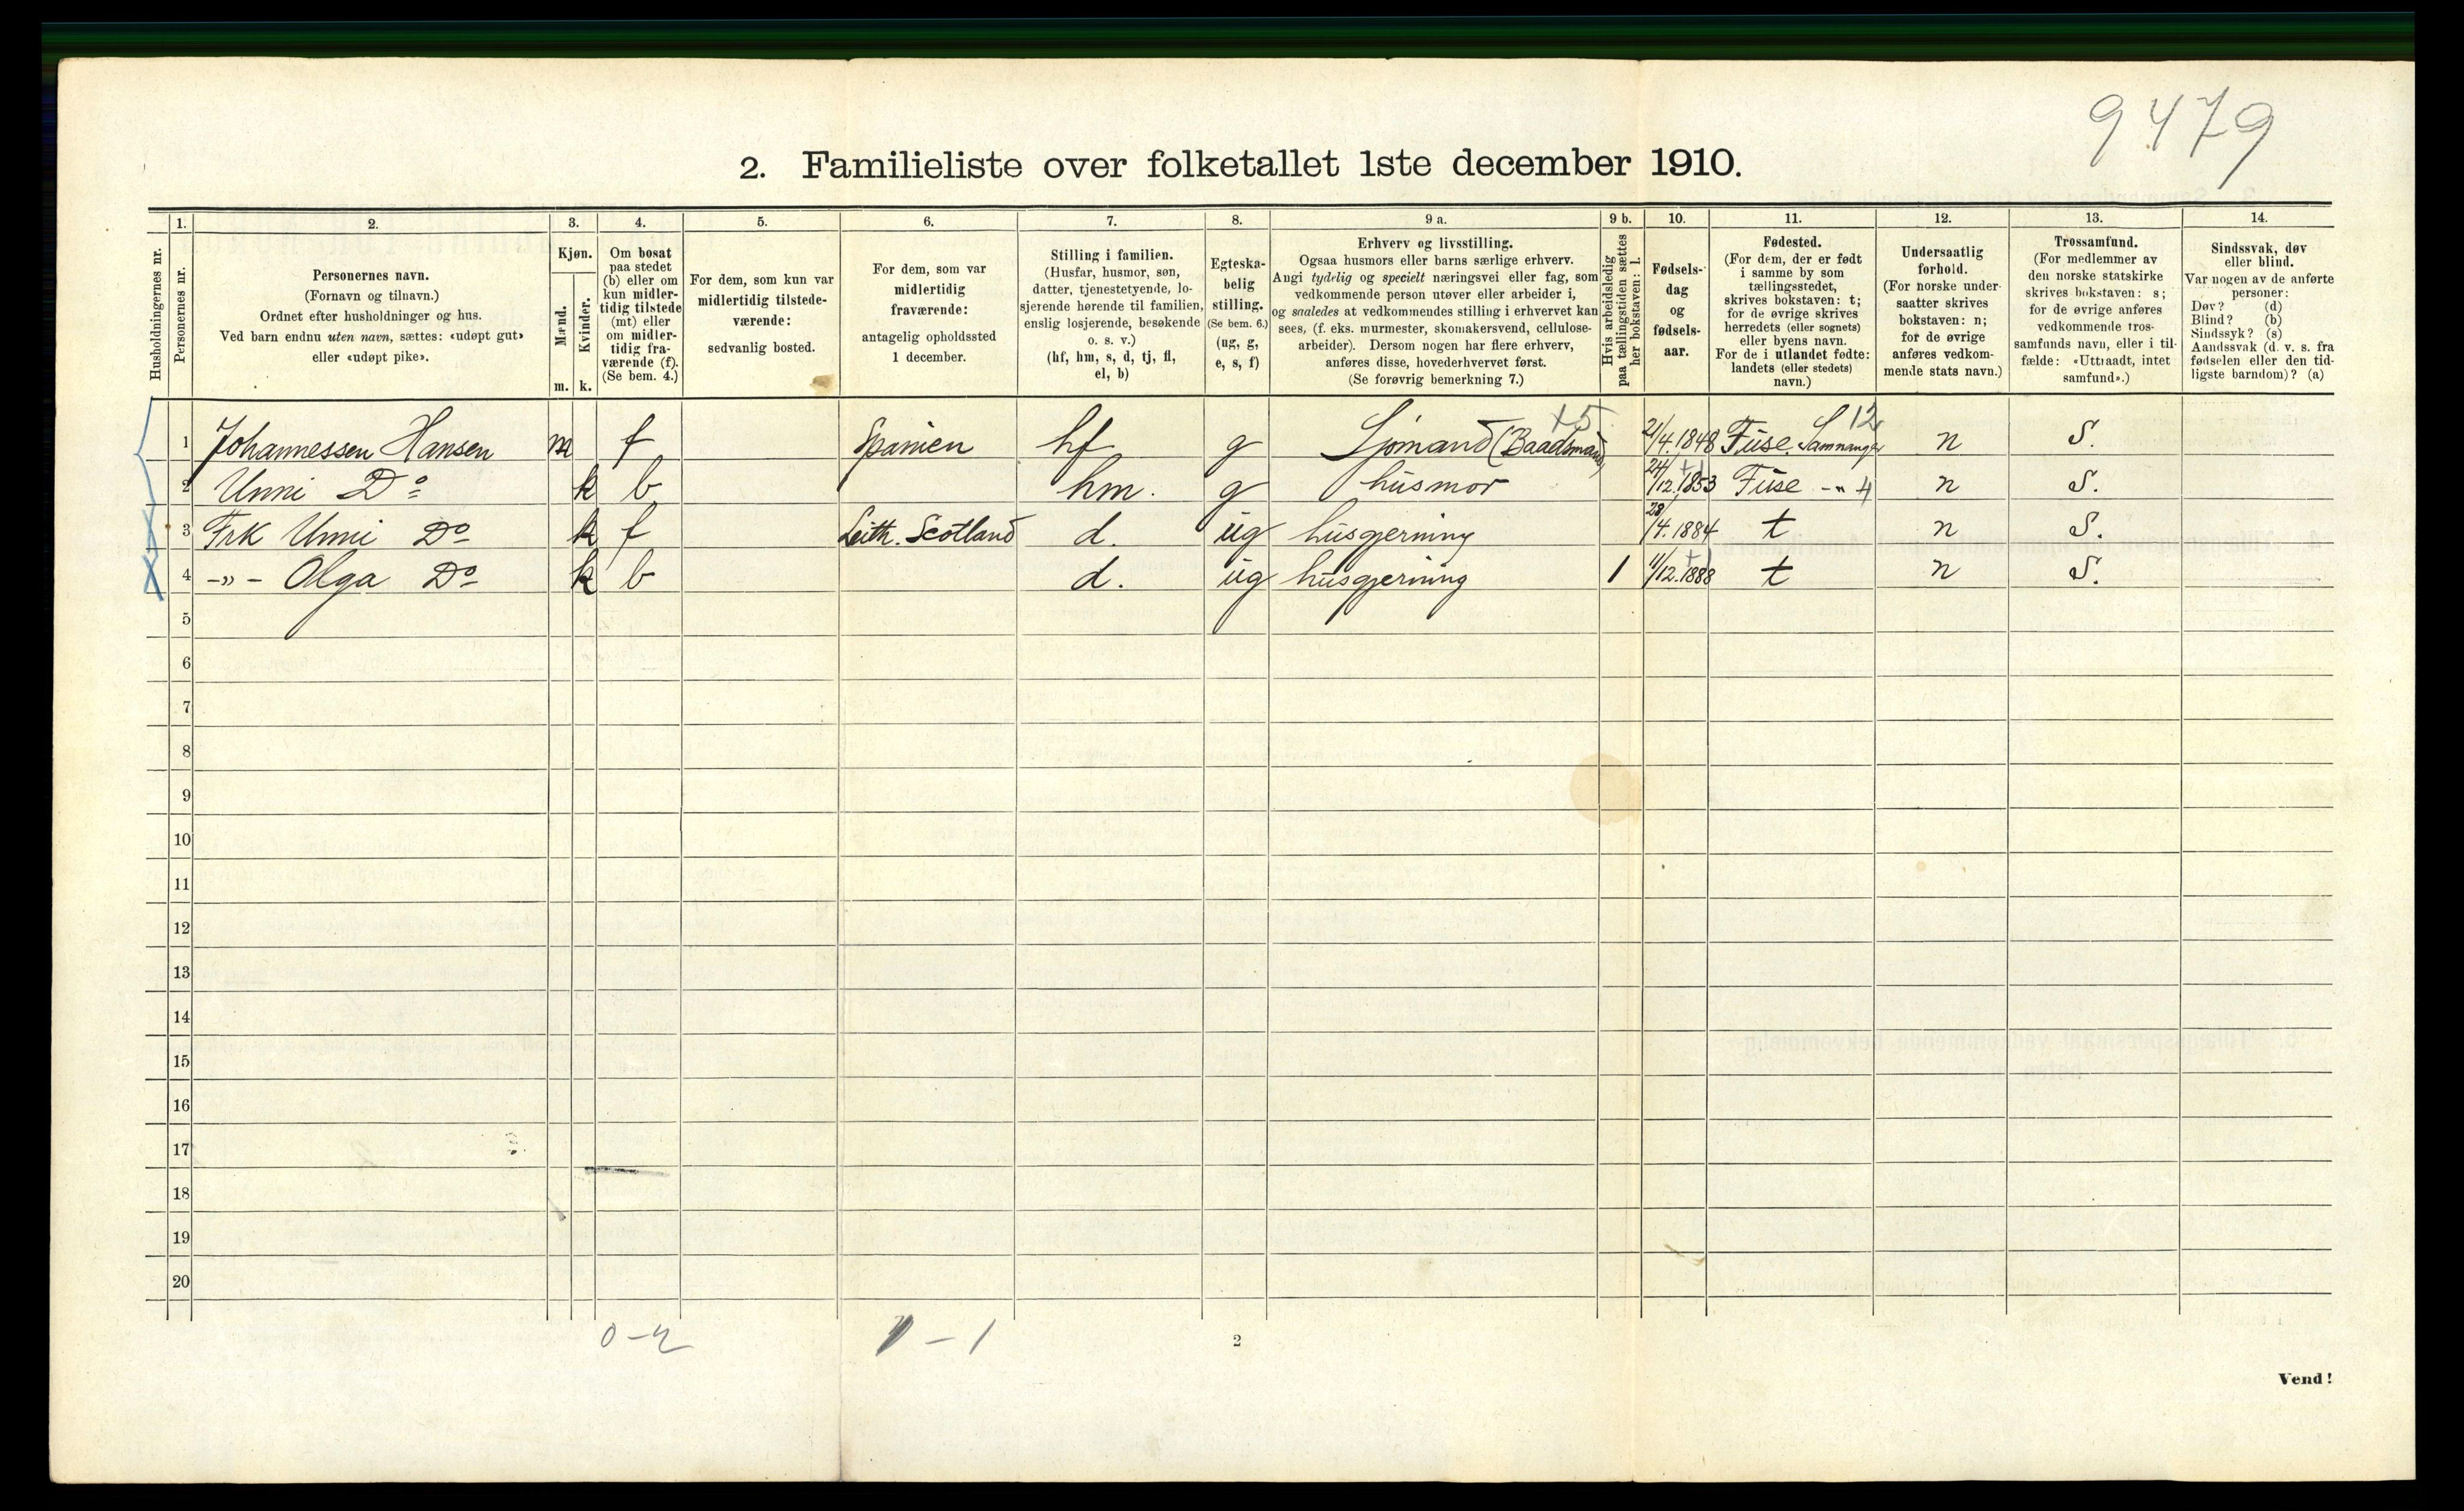 9479
2. Familieliste over folketallet 1ste december 1910.
1. 2. 3. 4. 5. 6. 7. 8. 9 a. 9 b. 10. 11. 12. 13. 14.
Husholdningernes nr.
Personernes nr.
Personernes navn.
(Fornavn og tilnavn.)
Ordnet efter husholdninger og hus.
Ved barn endnu uten navn, sættes: «udøpt gut»
eller «udøpt pike».
Kjøn.
Mænd.
Kvinder.
m. k.
Om bosat
paa stedet
(b) eller om
kun midler-
tidig tilstede
(mt) eller
om midler-
tidig fra-
værende (f).
(Se bem. 4.)
For dem, som kun var
midlertidig tilstede-
værende:
sedvanlig bosted.
For dem, som var
midlertidig
fraværende:
antagelig opholdssted
1 december.
Stilling i familien.
(Husfar, husmor, søn,
datter, tjenestetyende, lo-
sjerende hørende til familien,
enslig losjerende, besøkende
o. s. v.)
(hf, hm, s, d, tj, fl,
el, b)
Egteska-
belig
stilling.
(Se bem. 6.)
(ug, g,
e, s, f)
Erhverv og livsstilling.
Ogsaa husmors eller barns særlige erhverv.
Angi tydelig og specielt næringsvei eller fag, som
vedkommende person utøver eller arbeider i,
og saaledes at vedkommendes stilling i erhvervet kan
sees, (f. eks. murmester, skomakersvend, cellulose-
arbeider). Dersom nogen har flere erhverv,
anføres disse, hovederhvervet først.
(Se forøvrig bemerkning 7.)
Hvis arbeidsledig
paa tællingstiden sættes
her bokstaven: l.
Fødsels-
dag
og
fødsels-
aar.
Fødested.
(For dem, der er født
i samme by som
tællingsstedet,
skrives bokstaven: t;
for de øvrige skrives
herredets (eller sognets)
eller byens navn.
For de i utlandet fødte:
landets (eller stedets)
navn.)
Undersaatlig
forhold.
(For norske under-
saatter skrives
bokstaven: n;
for de øvrige
anføres vedkom-
mende stats navn.)
Trossamfund.
(For medlemmer av
den norske statskirke
skrives bokstaven: s;
for de øvrige anføres
vedkommende tros-
samfunds navn, eller i til-
fælde: «Uttraadt, intet
samfund».)
Sindssvak, døv
eller blind.
Var nogen av de anførte
personer:
Døv? (d)
Blind? (b)
Sindssyk? (s)
Aandssvak (d. v. s. fra
fødselen eller den tid-
ligste barndom)? (a)
+5 12
1 Johannessen Hansen m f Spanien hf g Sjömand (Baadsmand) 21/4.1848 Fuse. Samnanger n S.
2 Unni Do k b hm. g husmor 24/12.1853 Fuse -"- 4 n S.
3 Frk Unni Do k f Leith. Scotland d. ug husgjerning 28/4.1884 t n S.
4 -"- Olga Do k b d. ug husgjerning 1 11/12.1888 t n S.
5
6
7
8
9
10
11
12
13
14
15
16
17
18
19
20
0-2 1-1
2
Vend!